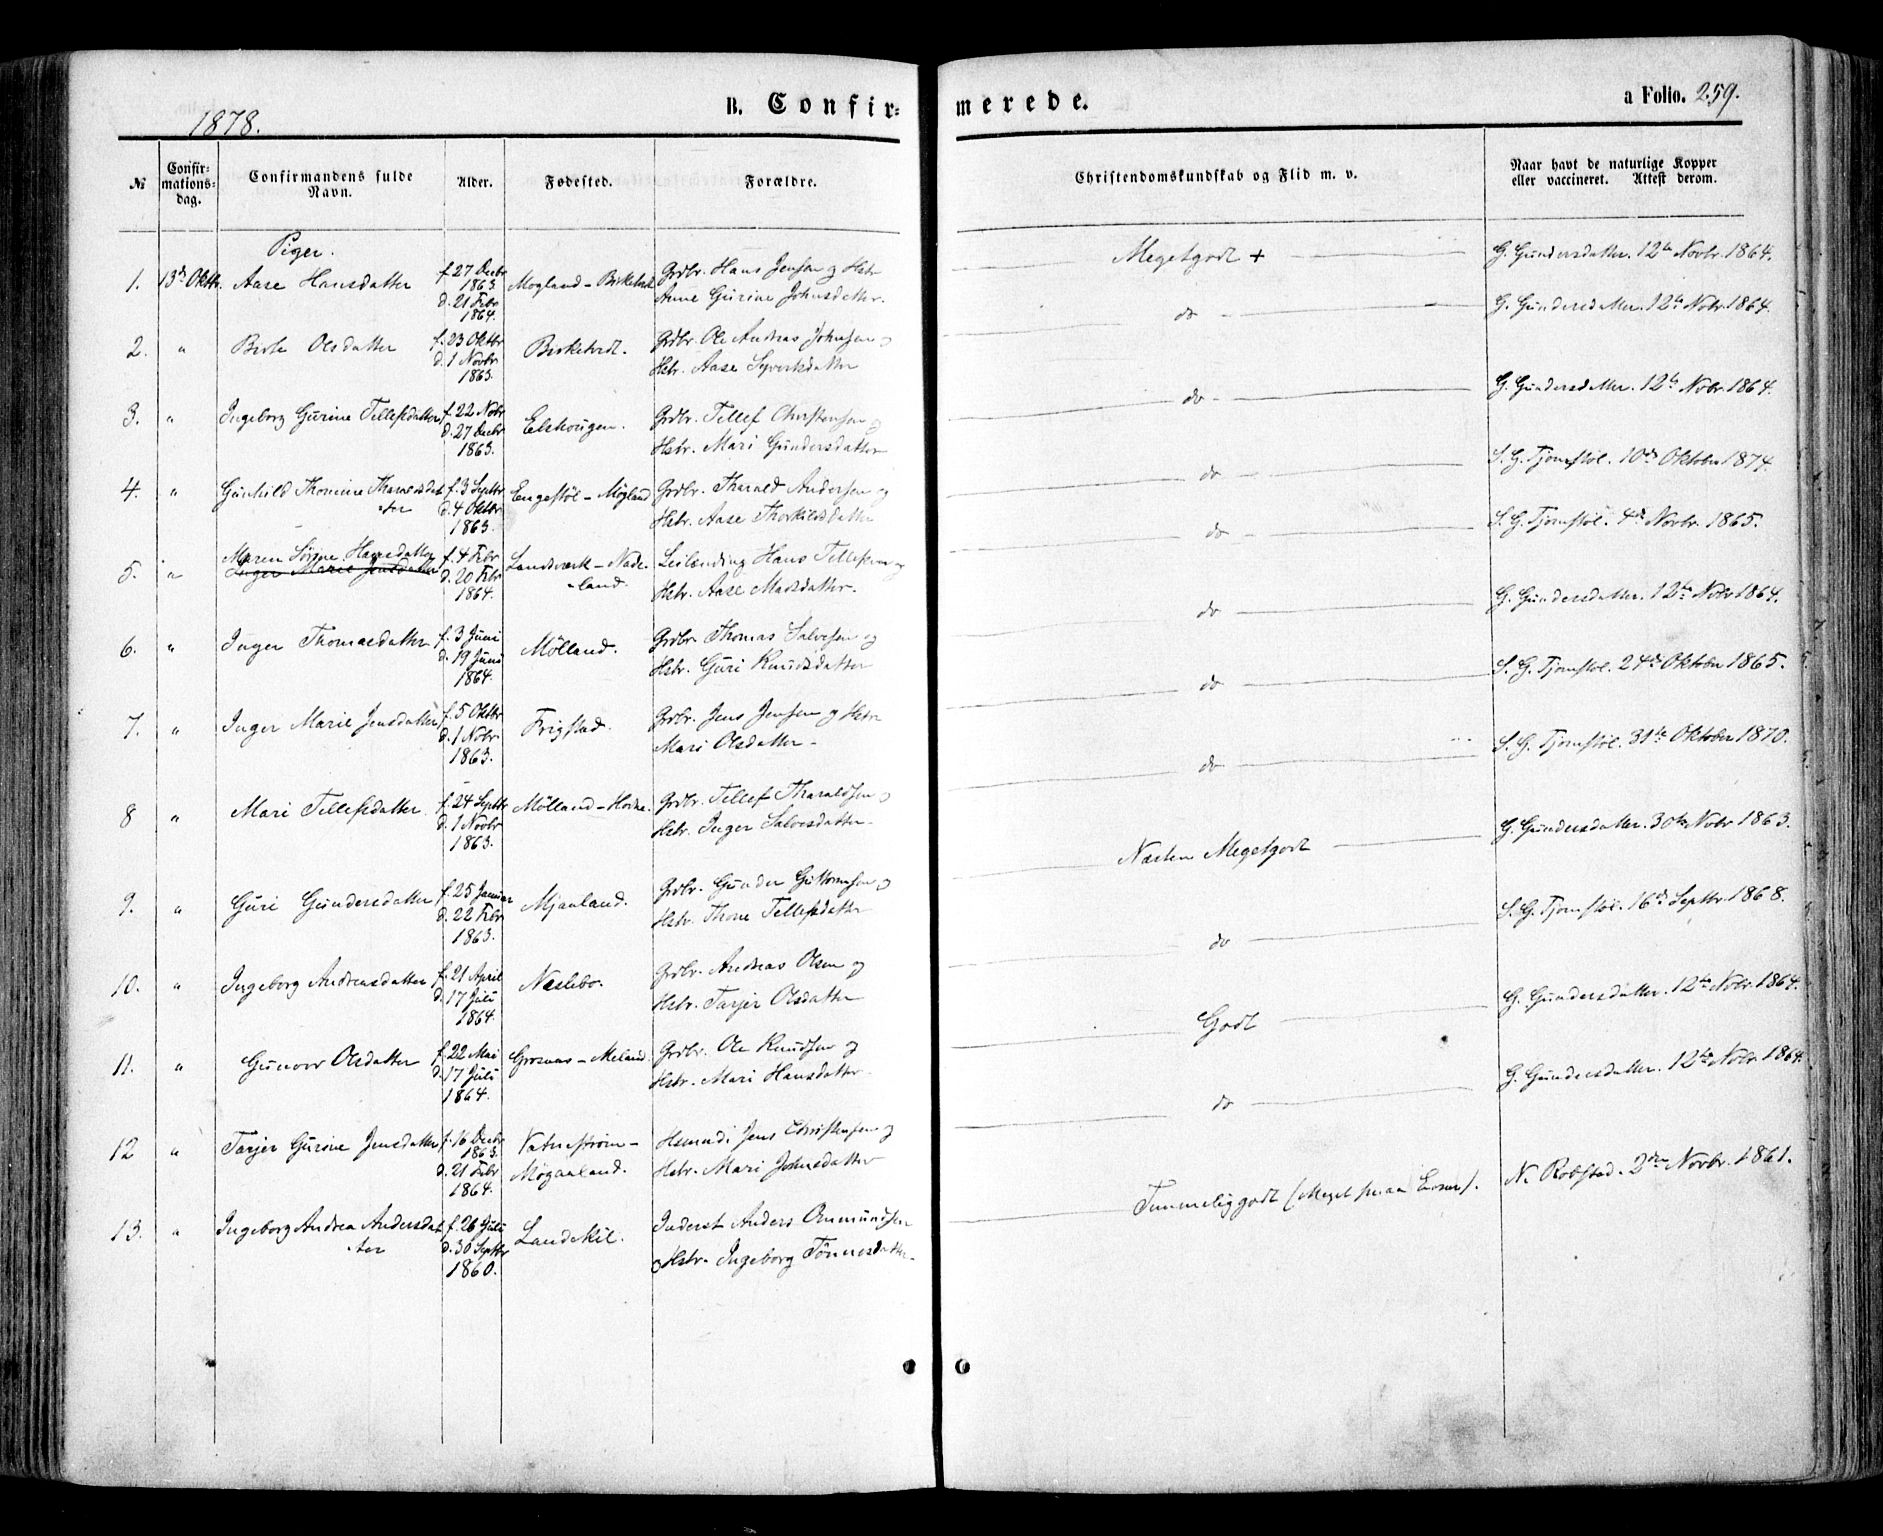 1878.
B. Confir=
merede.
a Folio. 259.
№
Confir-
mations-
dag.
Confirmandens fulde
Navn.
Alder.
Fødested.
Forældre.
Christendomskundskab og Flid m. v.
Naar havt de naturlige Kopper
eller vaccineret. Attest derom.
Piger.
1. 13de Oktbr. Aase Hansdatter f. 27 Decbr 1863 d. 21 Febr 1864. Mogland - Birketvedt Grdbr. Hans Jensen og Hstr
Anne Gurine Johnsdatter. Megetgodt + G. Gundersdatter. 12te Novbr. 1864.
2. " Birte Olsdatter f. 23 Oktbr d. 1 Novbr 1863. Birketvedt. Grdbr. Ole Andreas Johnsen og
Hstr. Aase Syvertsdatter do G. Gundersdatter. 12te Novbr 1864.
3. " Ingeborg Gurine Tellefsdatter f. 22 Novbr d. 27 Decbr 1863. Elshougen. Grdbr. Tellef Christensen og
Hstr. Mari Gundersdatter do G. Gundersdatter. 12te Novbr. 1864.
4. " Gunhild Thomine Tharaldsdat
ter f. 3 Septbr d. 4 Oktbr 1863. Engestøl - Mogland Grdbr. Tharald Andersen og
Hstr. Aase Thorkildsdatter do S. G. Tjomstøl. 10de Oktober 1874
5. " Maren Sørine Hansdatter
Inger Marie Jensdatter f. 4 Febr d. 20 Febr 1864. Landsværk - Nade-
land. Leilænding Hans Tellefsen og
Hstr. Aase Madsdatter. do S. G. Tjomstøl. 4de Novbr. 1865.
6. " Inger Thomasdatter f. 3 Juni d. 19 Juni 1864. Mølland. Grdbr. Thomas Salvesen og
Hstr. Guri Knudsdatter do G. Gundersdatter. 12te Novbr 1864.
7. " Inger Marie Jensdatter f. 5 Oktbr d. 1 Novbr 1863. Frigstad. Grdbr. Jens Jensen og Hstr
Mari Olsdatter - do S. G. Tjomstøl. 24de Oktober 1865.
8 " Mari Tellefsdatter f. 24 Septbr d. 1 Novbr 1863. Mølland - Grdbr. Tellef Tharaldsen og
Hstr. Inger Salvesdatter. do S. G. Tjomstøl. 31te Oktober 1870.
9. " Guri Gundersdatter f. 25 Januar d. 22 Febr 1863. Mjaaland. Grdbr. Gunder Guttormsen og
Hstr. Thone Tellefsdatter Næsten Megetgodt G. Gundersdatter. 30te Novbr 1863.
10. " Ingeborg Andreasdatter f. 21 April d. 17 Juli 1864. Næslebo. Grdbr. Andreas Olsen og
Hstr. Tarjer Olsdatter do S. G. Tjomstøl. 16de Septbr. 1868.
11. " Gunvor Olsdatter f. 22 Mai d. 17 Juli 1864. Grosnas - Meland. Grdbr. Ole Knudsen og
Hstr. Mari Hansdatter. Godt G. Gundersdatter. 12te Novbr. 1864.
12 " Tarjer Gurine Jensdatter f. 16 Decbr 1863. d. 21 Febr 1864. Vatnestrøm -
Mogaaland. Jens Christensen og
Hstr. Mari Johnsdatter do G. Gundersdatter. 12te Novbr. 1864.
13. " Ingeborg Andrea Andersdat
ter f. 26 Juli d. 30 Septbr 1860. Landskil. Inderst Anders Ommundsen
og Hstr. Ingeborg Tønnesdatter. Temmeliggodt (Meget svag Læser). N. Robstad. 2den Novbr. 1861.